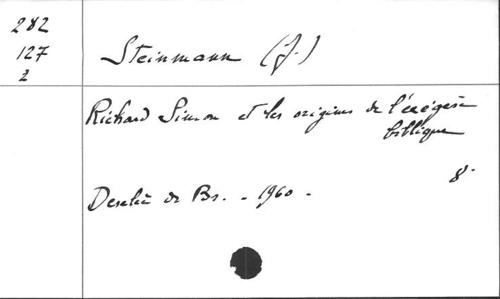 282
127
2
Steinmann (J.)
Richard Simon et les origines de l'exégèse
biblique
8°
Desclée de Br. - 1960 -